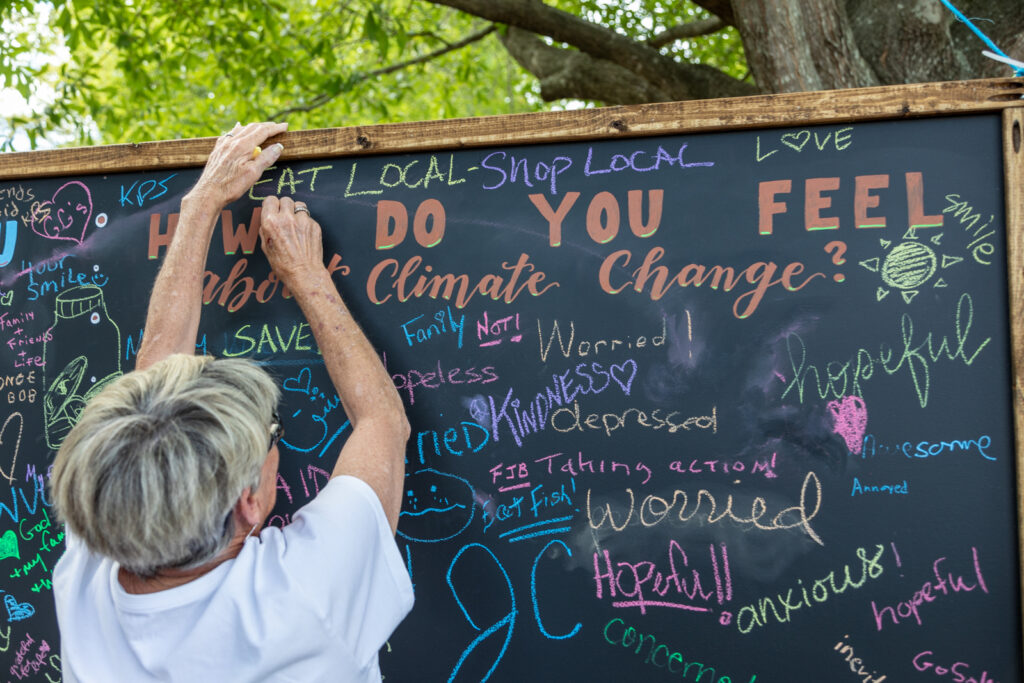 EAT LOCAL - SHOP LOCAL
LOVE
KPS
KPS
HOW DO YOU FEEL
about Climate Change?
smile
U
Your smile
Family + Friends + Life
SAVE
Family
NOT!
Worried!
hopeful
hopeless
KINDNESS
depressed
Awesome
FJB
Taking action!
Annoyed
Eat Fish!
Worried
God
+ my fam
HOPEFUL!!
anxious!
hopeful
concerned